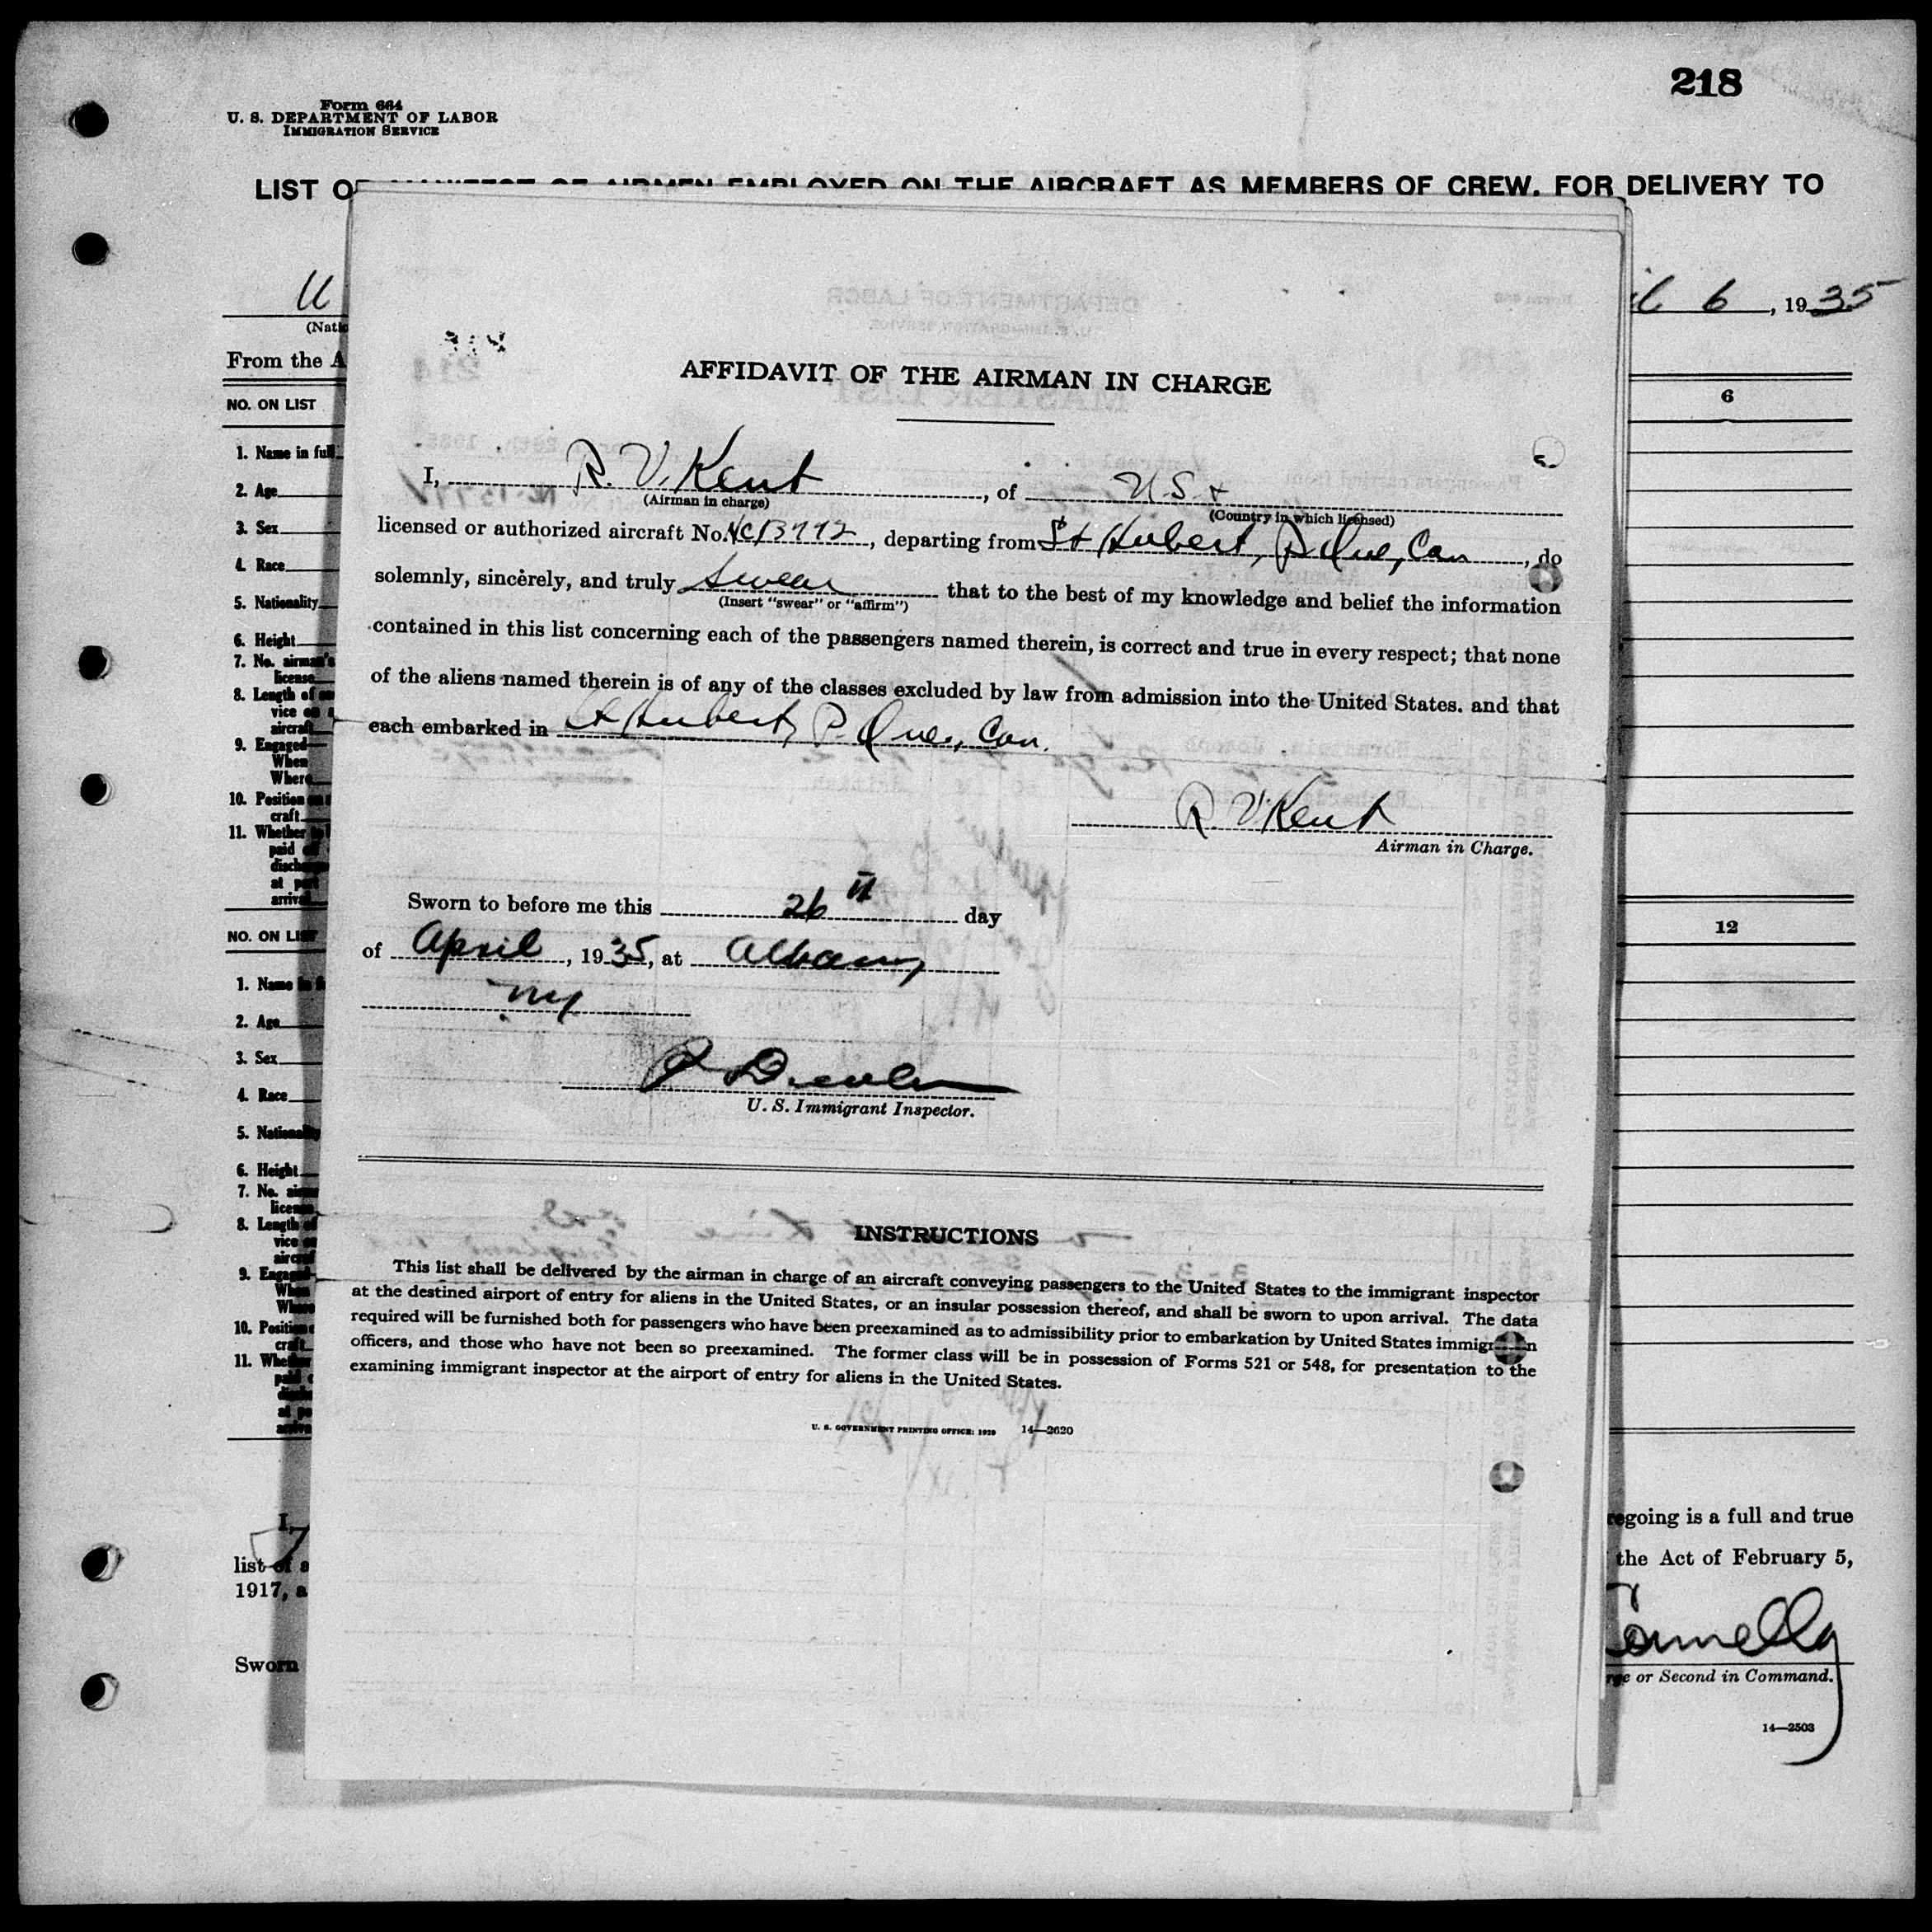 218
Form 664
U. S. DEPARTMENT OF LABOR
IMMIGRATION SERVICE
LIST OF MANIFEST OF AIRMEN EMPLOYED ON THE AIRCRAFT AS MEMBERS OF CREW, FOR DELIVERY TO
U
6, 1935
(Natio
From the A
NO. ON LIST
6
1. Name in full
2. Age
3. Sex
4. Race
5. Nationality
6. Height
7. No. airman's
license
8. Length of
vice on a
aircraft
9. Engaged—
When
Where
10. Position
craft
11. Whether
paid
disch
at
arrival
NO. ON LIST
12
1. Name
2. Age
3. Sex
4. Race
5. Nationality
6. Height
7. No.
license
8. Length of
vice
aircraft
9. Engaged
When
Where
10. Position
craft
11. Whether
paid
at
I,
list of a
1917, a
Sworn
AFFIDAVIT OF THE AIRMAN IN CHARGE
I, R. V. Kent, of U.S.
(Airman in charge) (Country in which licensed)
licensed or authorized aircraft No. , departing from St Hubert, P Que, Can, do
solemnly, sincerely, and truly swear that to the best of my knowledge and belief the information
(Insert "swear" or "affirm")
contained in this list concerning each of the passengers named therein, is correct and true in every respect; that none
of the aliens named therein is of any of the classes excluded by law from admission into the United States. and that
each embarked in St Hubert, P. Que., Can.
R. V. Kent
Airman in Charge.
Sworn to before me this 26th day
of April, 1935, at Albany
NY
U. S. Immigrant Inspector.
INSTRUCTIONS
This list shall be delivered by the airman in charge of an aircraft conveying passengers to the United States to the immigrant inspector
at the destined airport of entry for aliens in the United States, or an insular possession thereof, and shall be sworn to upon arrival. The data
required will be furnished both for passengers who have been preexamined as to admissibility prior to embarkation by United States immigration
officers, and those who have not been so preexamined. The former class will be in possession of Forms 521 or 548, for presentation to the
examining immigrant inspector at the airport of entry for aliens in the United States.
U. S. GOVERNMENT PRINTING OFFICE: 1929 14—2620
regoing is a full and true
the Act of February 5,
Connelly
rge or Second in Command.
14—2503